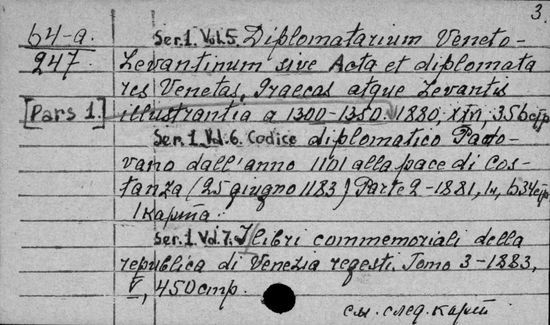 3.
64-a. Ser. 1. Vol. 5. Diplomatarium Veneto-
247 Levantinum sive Acta et diplomata
res Venetas, Graecas atque Levantis
[Pars 1.] illustrantia a 1300-1350. 1880, XXVI, 356 стр
Ser. 1. Vol. 6. Codice diplomatico Pado-
vano dall'anno 1101 alla pace di Cos-
tanza (25 giugno 1183) Parte 2-1881, 634 стр
1 карта.
Ser. 1. Vol. 7. I libri commemoriali della
republica di Venezia regesti. Tomo 3-1883,
V, 450 стр.
см. след. карт